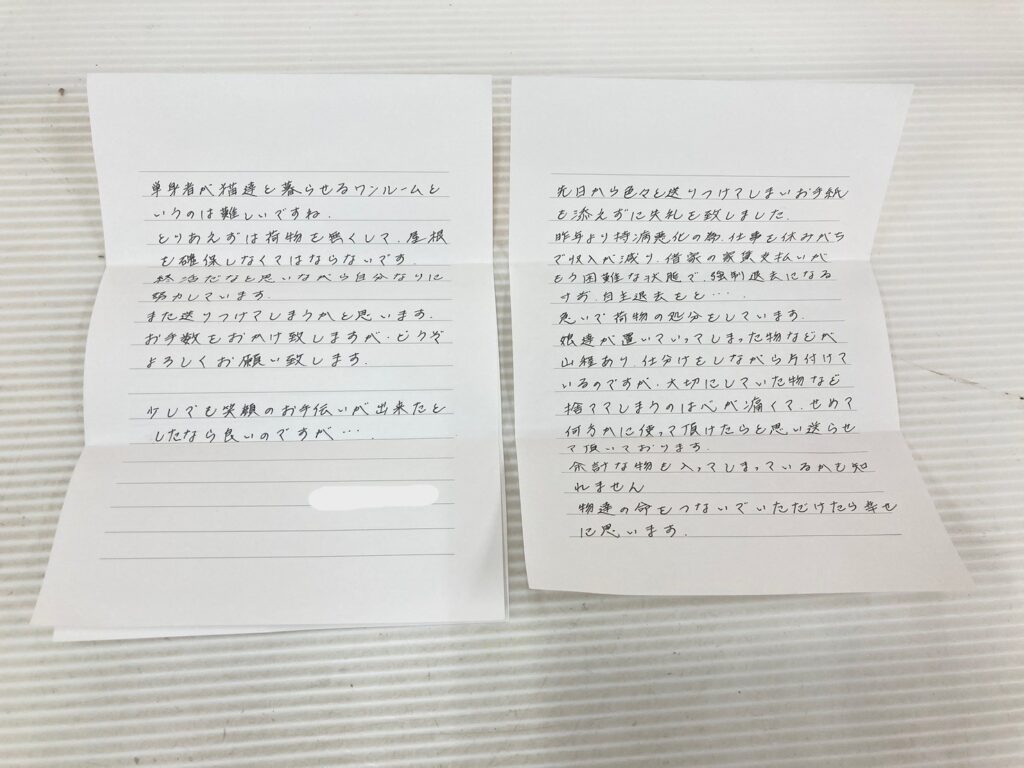 先日から色々と送りつけてしまいお手紙
を添えずに失礼を致しました.
昨年より持病悪化の為、仕事を休みがち
で収入が減り、借家の家賃支払いが
もう困難な状態で、強制退去になる
自主退去をと….
急いで荷物の処分をしています.
娘達が置いていってしまった物などが
山程あり、仕分けをしながら片付けて
いるのですが、大切にしていた物など
捨ててしまうのは心が痛くて、せめて
何方かに使って頂けたらと思い送らせ
て頂いております.
余計な物も入ってしまっているかも知
れません
物達の命をつないでいただけたら幸せ
に思います.
単身者が猫達と暮らせるワンルームと
いうのは難しいですね.
とりあえずは荷物を無くして、屋根
を確保しなくてはならないです.
終活だなと思いながら自分なりに
努力しています.
また送りつけてしまうかと思います.
お手数をおかけ致しますが、どうぞ
よろしくお願い致します.
少しでも笑顔のお手伝いが出来たと
したなら良いのですが….